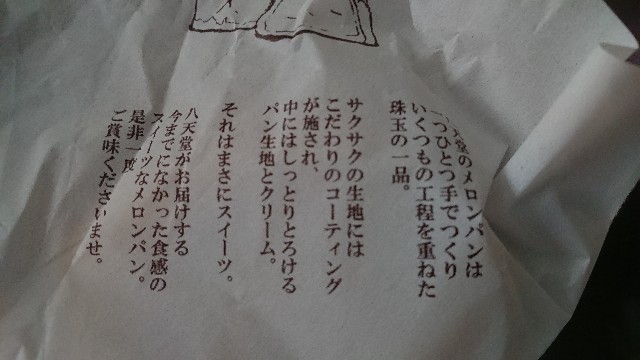 天堂のメロンパンは
一つひとつ手でつくり
いくつもの工程を重ねた
珠玉の一品。
サクサクの生地には
こだわりのコーティング
が施され、
中にはしっとりとろける
パン生地とクリーム。
それはまさにスイーツ。
八天堂がお届けする
今までになかった食感の
スイーツなメロンパン。
是非一度
ご賞味くださいませ。